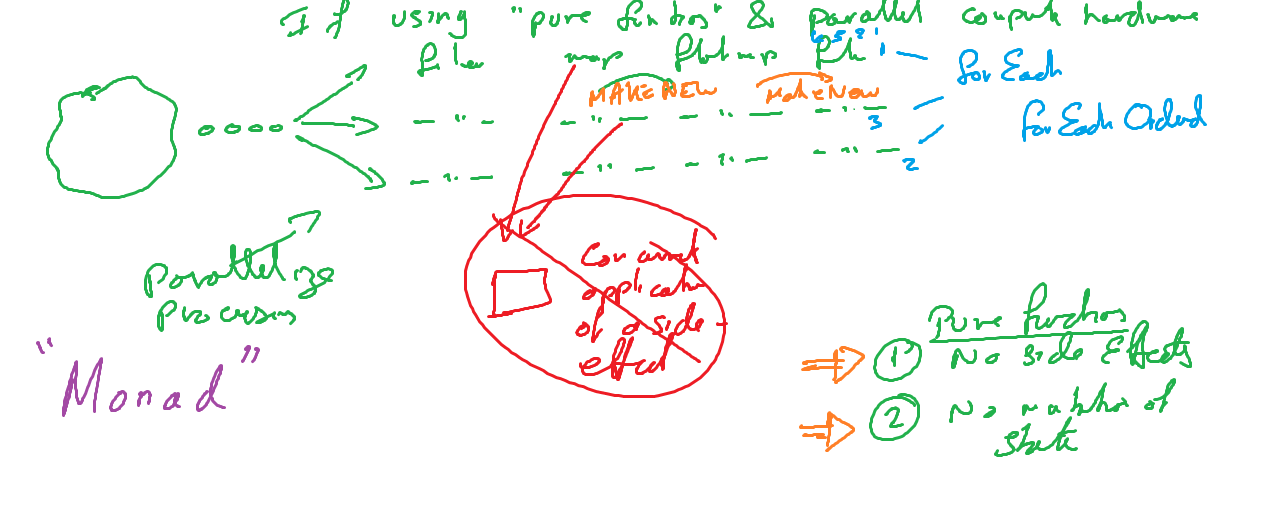 If using "pure functions" & parallel compute hardware
filter map flatmap
1
forEach
MAKE NEW Make New
- " - - " - - " - - " - 3
forEach Ordered
- " - - " - - " - - " - 2
Parallelize
Processes
Concurrent
application
of a side-
effect
"Monad"
Pure functions
1 No side Effects
2 No mutation of
state